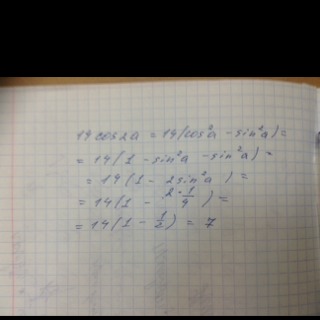 14cos2a = 14(cos²a - sin²a) =
= 14(1 - sin²a - sin²a) =
= 14(1 - 2sin²a) =
= 14(1 - 2·1/4) =
= 14(1 - 1/2) = 7